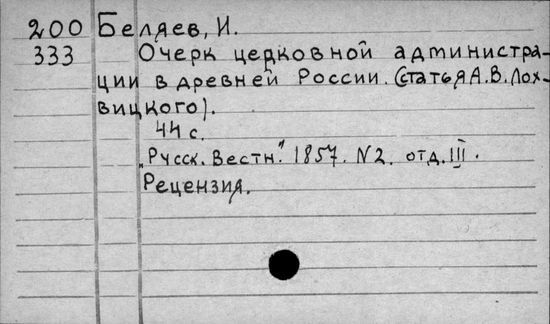 200 Беляев, И.
333 Очерк церковной администра-
ции в древней России. (Статья А.В. Лох-
вицкого).
44 с.
„Русск. Вестн." 1857. N2. отд. III.
Рецензия.